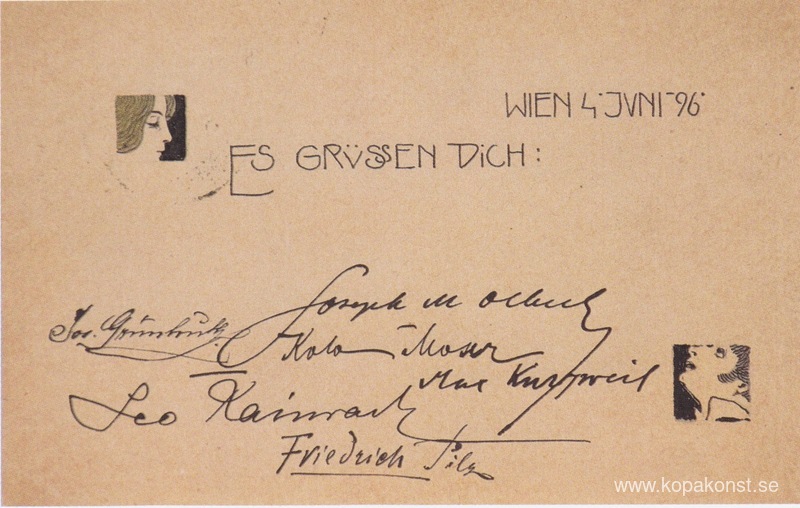 WIEN 4. JVNI 96.
ES GRÜSSEN DiCH:
Joseph M Olbrich
Jos. Grünhut
Kolo Moser
Max Kurzweil
Leo Kainradl
Friedrich Pilz
www.kopakonst.se